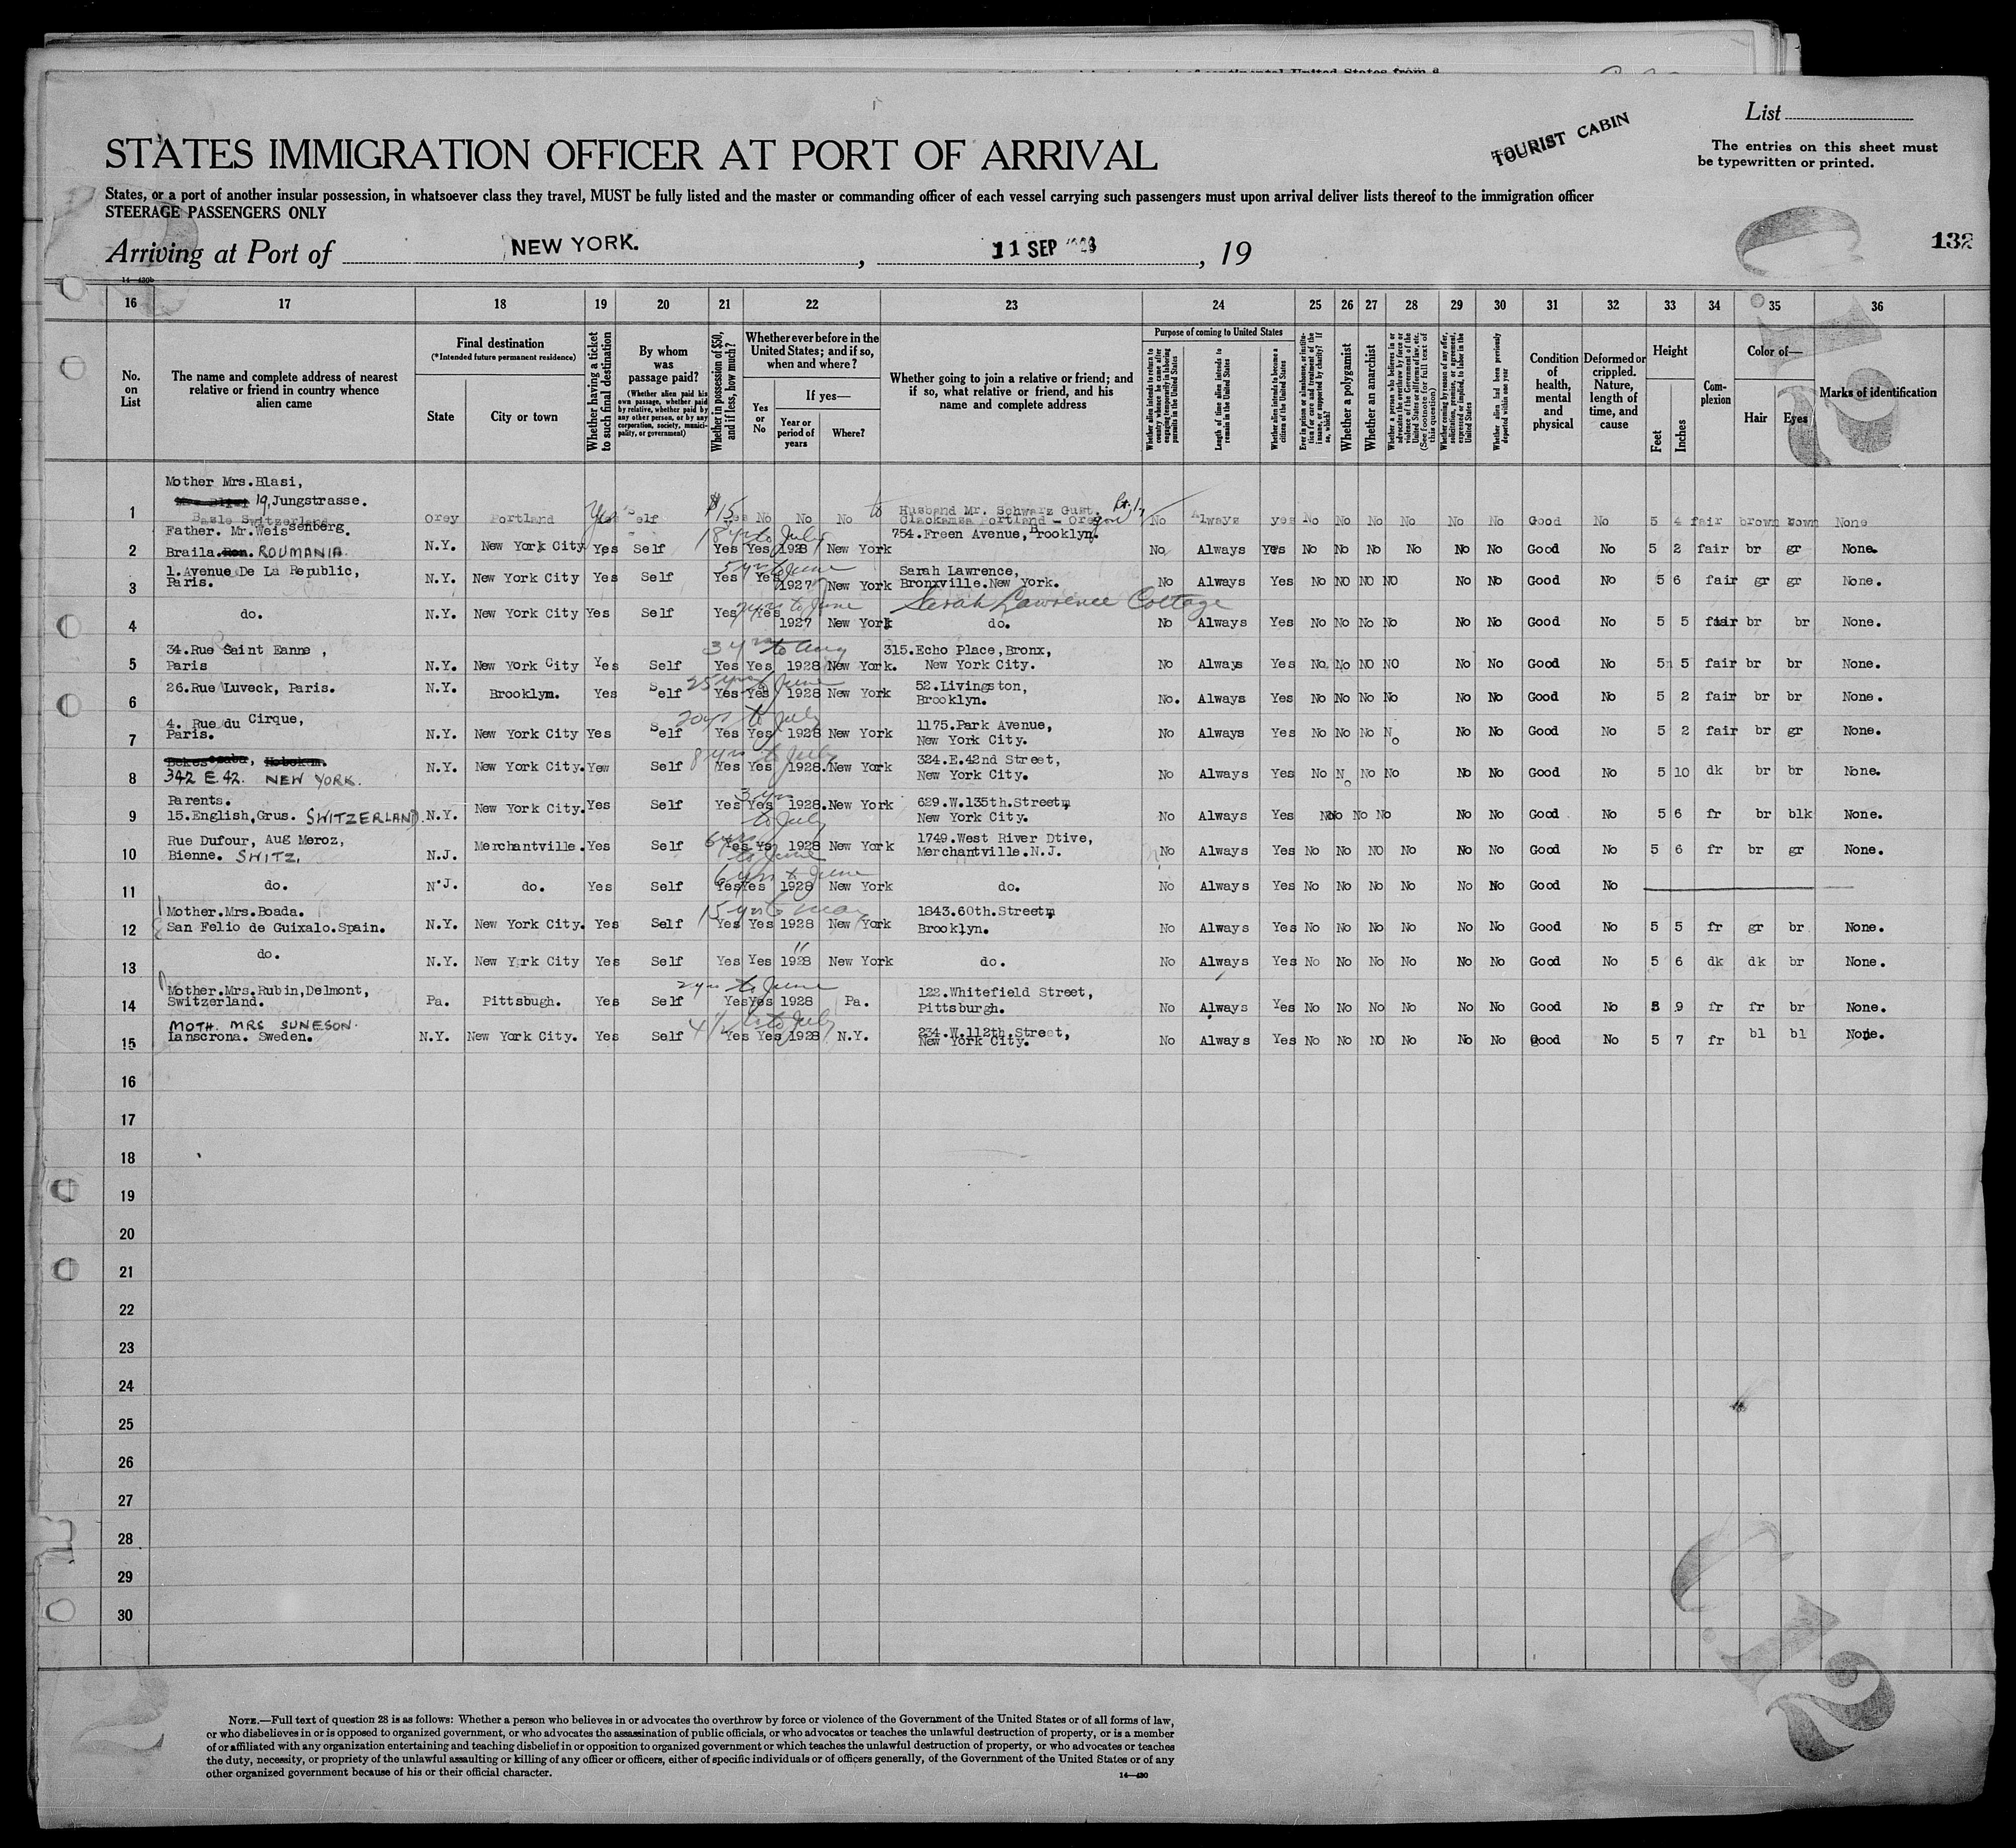 List
TOURIST CABIN
The entries on this sheet must
be typewritten or printed.
STATES IMMIGRATION OFFICER AT PORT OF ARRIVAL
States, or a port of another insular possession, in whatsoever class they travel, MUST be fully listed and the master or commanding officer of each vessel carrying such passengers must upon arrival deliver lists thereof to the immigration officer
STEERAGE PASSENGERS ONLY
Arriving at Port of NEW YORK. , 11 SEP 1928 , 19
132
16 17 18 19 20 21 22 23 24 25 26 27 28 29 30 31 32 33 34 35 36
No. on List
The name and complete address of nearest relative or friend in country whence alien came
Final destination
(*Intended future permanent residence)
State
City or town
Whether having a ticket to such final destination
By whom was passage paid?
(Whether alien paid his own passage, whether paid by relative, whether paid by any other person, or by any corporation, society, municipality, or government)
Whether in possession of $50, and if less, how much?
Whether ever before in the United States; and if so, when and where?
Yes or No
If yes—
Year or period of years
Where?
Whether going to join a relative or friend; and if so, what relative or friend, and his name and complete address
Purpose of coming to United States
Whether alien intends to return to country whence he came after engaging temporarily in laboring pursuits in the United States
Length of time alien intends to remain in the United States
Whether alien intends to become a citizen of the United States
Ever in prison or almshouse, or institution for care and treatment of the insane, or supported by charity? If so, which?
Whether a polygamist
Whether an anarchist
Whether a person who believes in or advocates the overthrow by force or violence of the Government of the United States or all forms of law, etc. (See footnote for full text of this question)
Whether coming by reason of any offer, solicitation, promise, or agreement, expressed or implied, to labor in the United States
Whether alien had been previously deported within one year
Condition of health, mental and physical
Deformed or crippled. Nature, length of time, and cause
Height
Feet
Inches
Complexion
Color of—
Hair
Eyes
Marks of identification
Mother Mrs.Blasi,
19,Jungstrasse.
1 Basle Switzerland Orey Portland Yes Self $15 Yes No No No to Husband Mr. Schwarz Gust. Clackamsa Portland - Oregon No Always yes No No No No No No Good No 5 4 fair brown brown None
Father. Mr.Weissenberg.
2 Braila. ROUMANIA N.Y. New York City Yes Self 18 yrs to July Yes Yes 1928 New York 754.Freen Avenue, Brooklyn. No Always Yes No No No No No No Good No 5 2 fair br gr None.
1.Avenue De La Republic,
3 Paris. N.Y. New York City Yes Self 5 yrs to June Yes Yes 1927 New York Sarah Lawrence, Bronxville.New York. No Always Yes No NO NO NO No No Good No 5 6 fair gr gr None.
Sarah Lawrence Cottage
4 do. N.Y. New York City Yes Self 2 yrs to June Yes Yes 1927 New York do. No Always Yes No No No No No No Good No 5 5 fair br br None.
34.Rue Saint Eanne,
5 Paris N.Y. New York City Yes Self 3 yrs to Aug Yes Yes 1928 New York. 315.Echo Place,Bronx, New York City. No Always Yes No. No NO NO No No Good No 5 5 fair br br None.
6 26.Rue Luveck, Paris. N.Y. Brooklym. Yes Self 25 yrs to June Yes Yes 1928 New York 52.Livingston, Brooklyn. No. Always Yes No No No No No No Good No 5 2 fair br br None.
4. Rue du Cirque,
7 Paris. N.Y. New York City Yes Self 20 yrs to July Yes Yes 1928 New York 1175.Park Avenue, New York City. No Always Yes No No No No No No Good No 5 2 fair br gr None.
8 342 E.42. NEW YORK. N.Y. New York City. Yew Self 8 yrs to July Yes Yes 1928. New York 324.E.42nd Street, New York City. No Always Yes No No No No No No Good No 5 10 dk br br None.
Parents.
9 15.English,Grus. SWITZERLAND. N.Y. New York City. Yes Self 3 yrs to July Yes Yes 1928. New York 629.W.135th.Streetm, New York City. No Always Yes No No No No No No Good No 5 6 fr br blk None.
Rue Dufour, Aug Meroz,
10 Bienne. SWITZ. N.J. Merchantville. Yes Self 6 yrs to June Yes Yes 1928 New York 1749.West River Dtive, Merchantville.N.J. No Always Yes No No NO No No No Good No 5 6 fr br gr None.
11 do. N.J. do. Yes Self 6 yrs to June Yes Yes 1928 New York do. No Always Yes No No No No No No Good No
Mother.Mrs.Boada.
12 San Felio de Guixalo.Spain. N.Y. New York City. Yes Self 15 yrs to May Yes Yes 1928 New York 1843.60th.Streetm, Brooklyn. No Always Yes No No No No No No Good No 5 5 fr gr br None.
13 do. N.Y. New Yrk City Yes Self " Yes Yes 1928 New York do. No Always Yes No No No No No No Good No 5 6 dk dk br None.
Mother.Mrs.Rubin,Delmont,
14 Switzerland. Pa. Pittsbugh. Yes Self 2 yrs to June Yes Yes 1928 Pa. 122.Whitefield Street, Pittsburgh. No Always Yes No No No No No No Good No 5 9 fr fr br None.
MOTH. MRS SUNESON.
15 Ianscrona. Sweden. N.Y. New York City. Yes Self 4½ to July Yes Yes 1928 N.Y. 234.W.112th.Street, New York City. No Always Yes No No NO No No No Good No 5 7 fr bl bl None.
16
17
18
19
20
21
22
23
24
25
26
27
28
29
30
NOTE.—Full text of question 28 is as follows: Whether a person who believes in or advocates the overthrow by force or violence of the Government of the United States or of all forms of law,
or who disbelieves in or is opposed to organized government, or who advocates the assassination of public officials, or who advocates or teaches the unlawful destruction of property, or is a member
of or affiliated with any organization entertaining and teaching disbelief in or opposition to organized government or which teaches the unlawful destruction of property, or who advocates or teaches
the duty, necessity, or propriety of the unlawful assaulting or killing of any officer or officers, either of specific individuals or of officers generally, of the Government of the United States or of any
other organized government because of his or their official character.
14—430